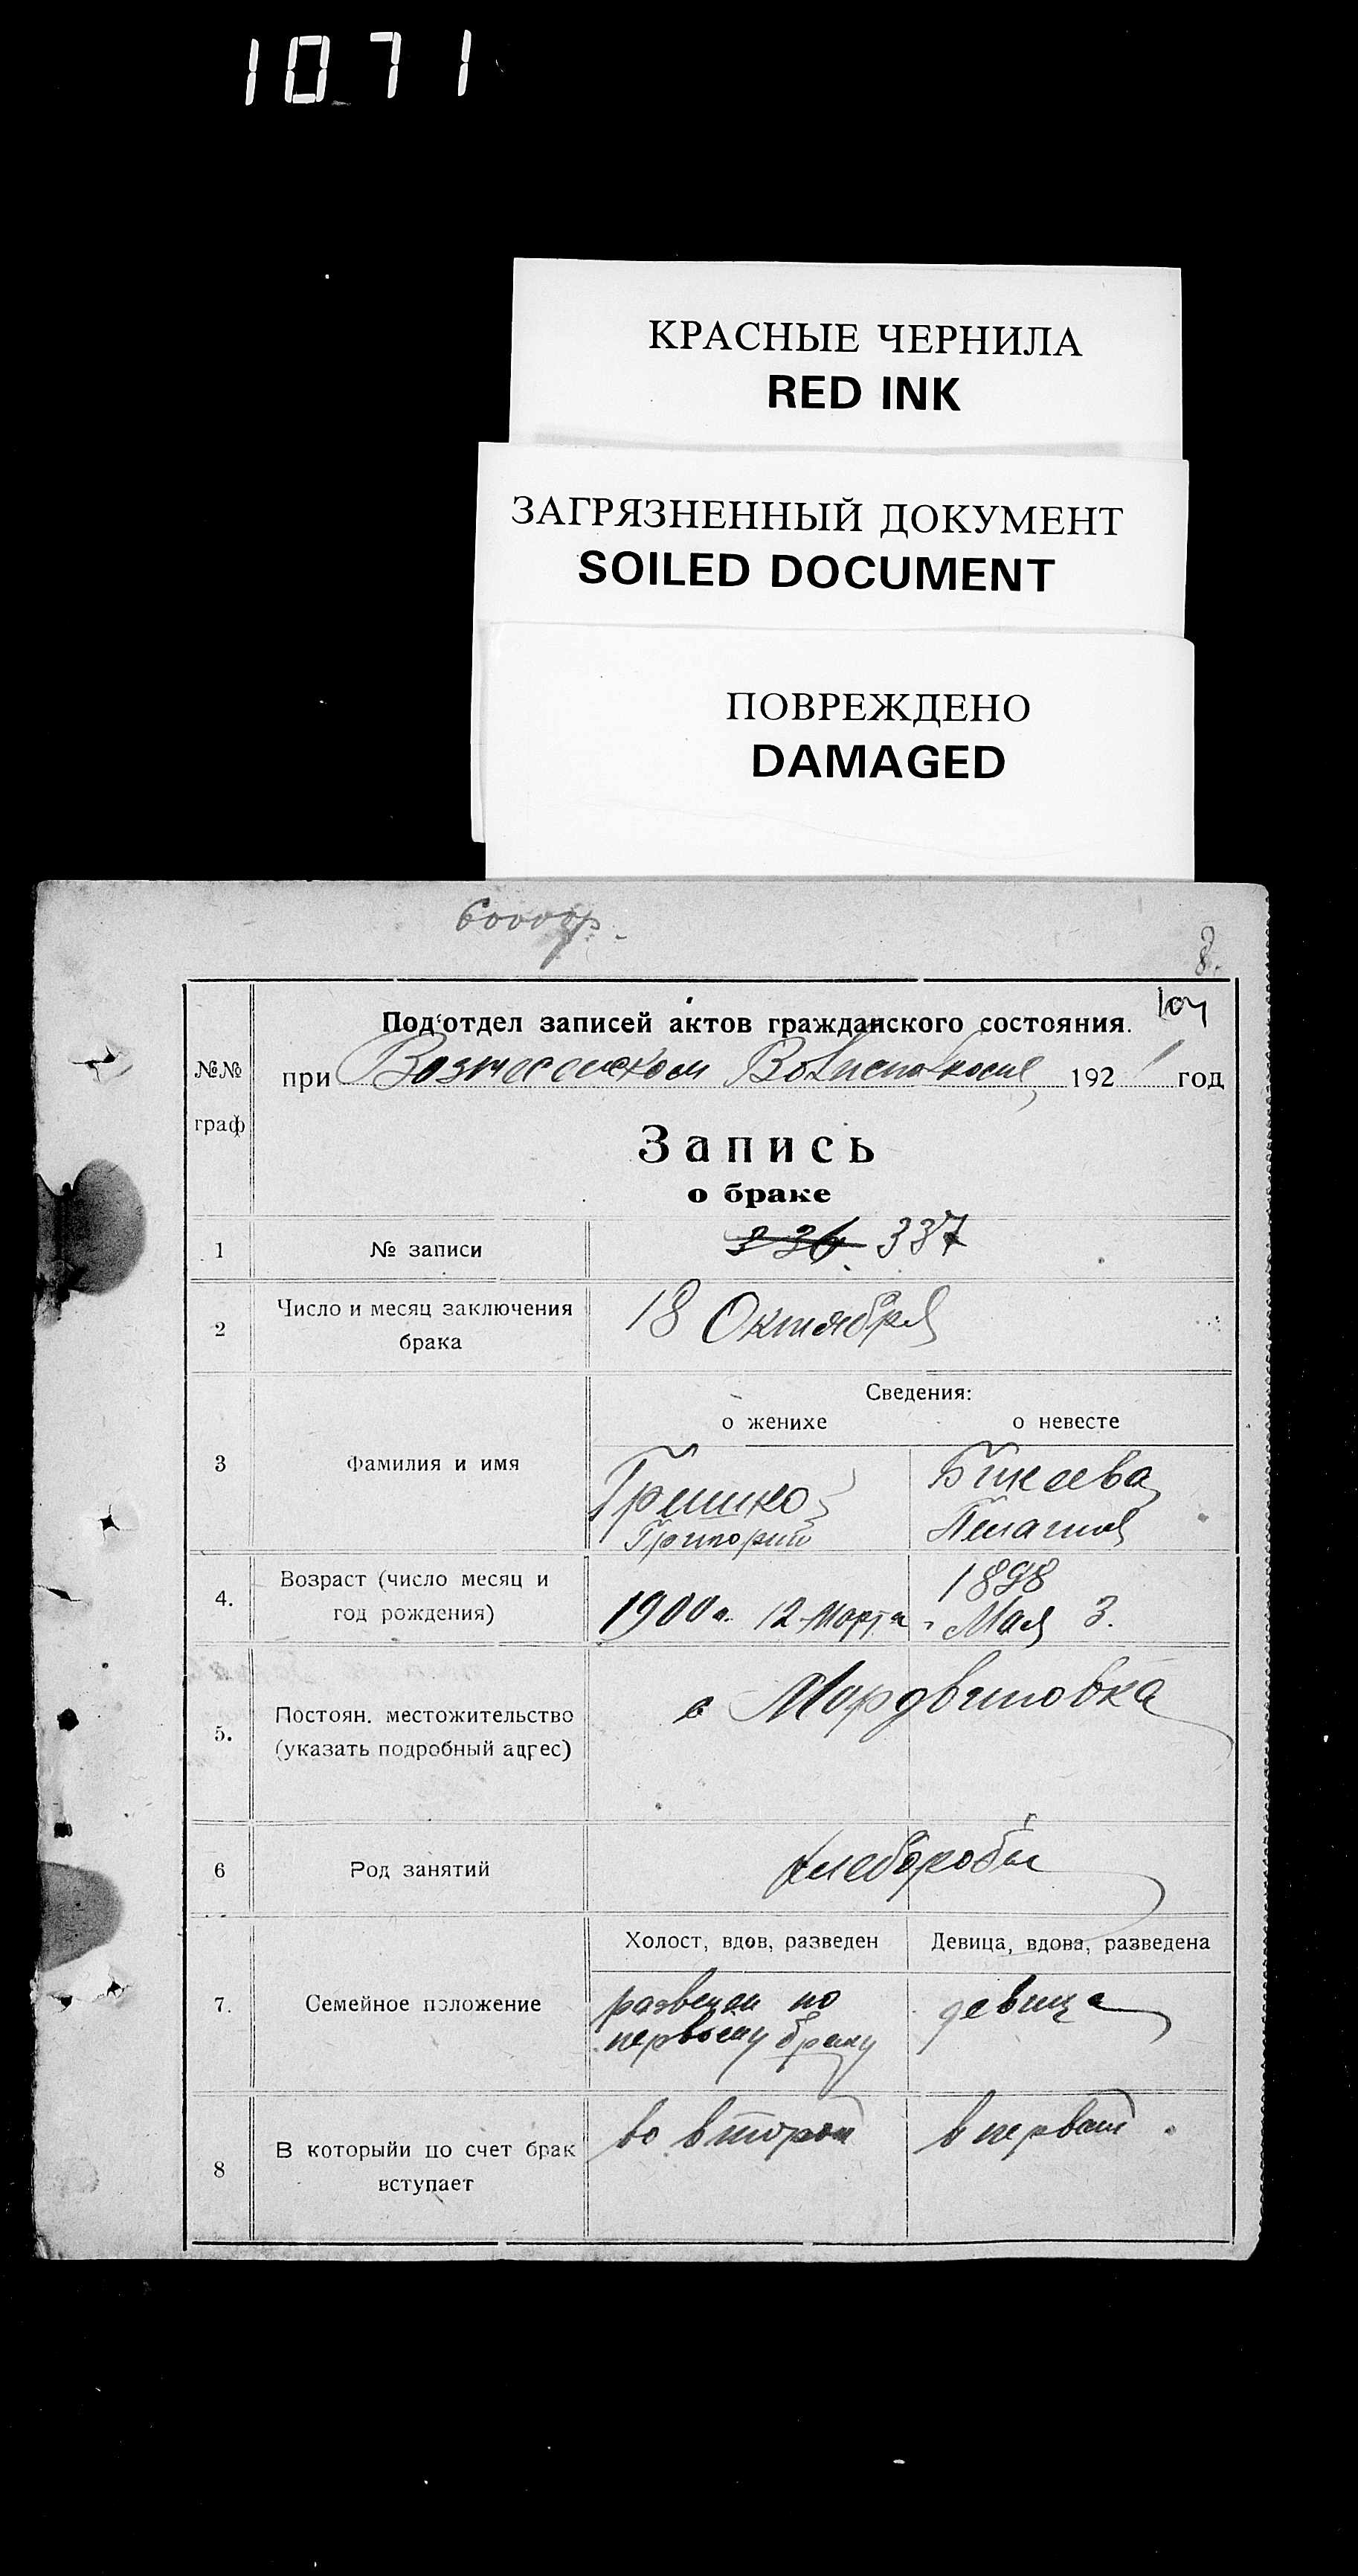 1071
КРАСНЫЕ ЧЕРНИЛА
RED INK
ЗАГРЯЗНЕННЫЙ ДОКУМЕНТ
SOILED DOCUMENT
ПОВРЕЖДЕНО
DAMAGED
60000р.
8.
Под'отдел записей актов гражданского состояния.
при Вознесенском 192 1 год
№№
граф
Запись
о браке
1 № записи 336 337
2 Число и месяц заключения брака 18 Октября
Сведения:
о женихе о невесте
3 Фамилия и имя Гришко Бикеева
Григорий Пелагия
4. Возраст (число месяц и год рождения) 1900 г. 12 Марта 1898
Мая 3.
5. Постоян. местожительство (указать подробный адрес) с Мордвиновка
6 Род занятий хлеборобы
Холост, вдов, разведен Девица, вдова, разведена
7. Семейное положение разведен по девица
первому браку
8 В которыйи по счет брак вступает во второй в первый